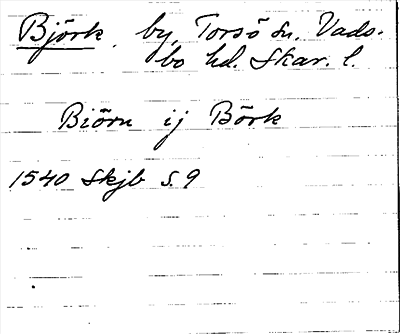 Björk, by, Torsö sn. Vads-
bo hd. Skar. l.
Biörn ij Börk
1540 Skjb S. 9